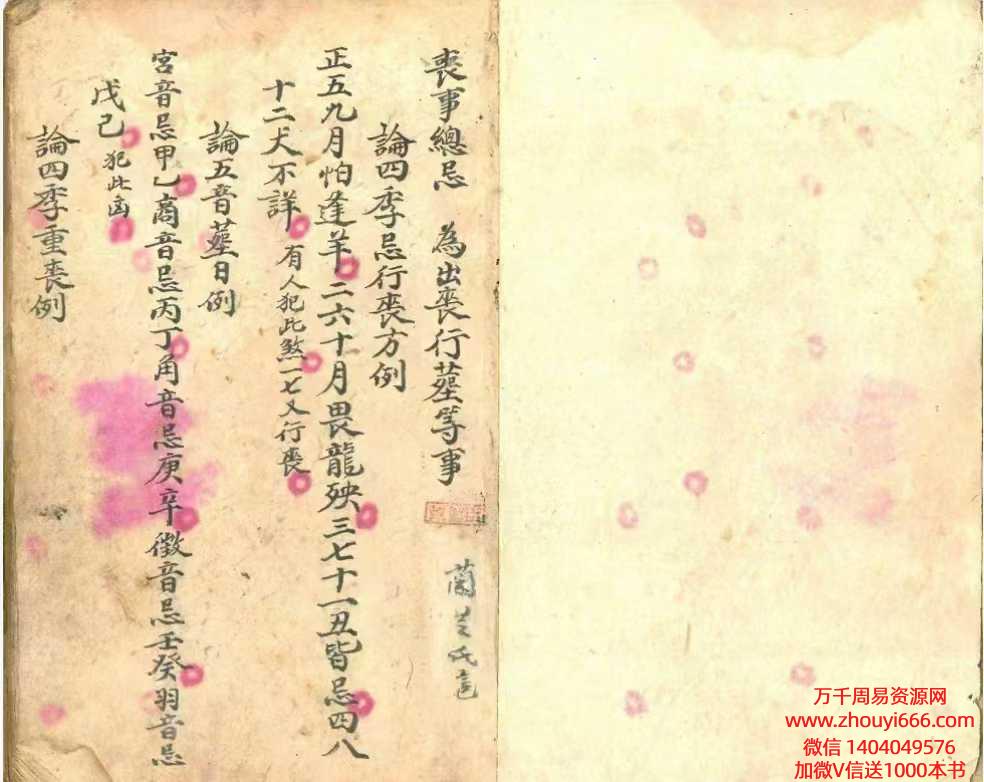 喪事總忌 為出喪行塟等事
論四季忌行喪方例
正五九月怕逢羊二六十月畏龍殃三七十一丑皆忌四八
十二犬不詳 有人犯此煞一七又行喪
論五音塟日例
宮音忌甲乙商音忌丙丁角音忌庚辛徵音忌壬癸羽音忌
戊己 犯此凶
論四季重喪例
万千周易资源网
www.zhouyi666.com
微信 1404049576
加微V信送1000本书